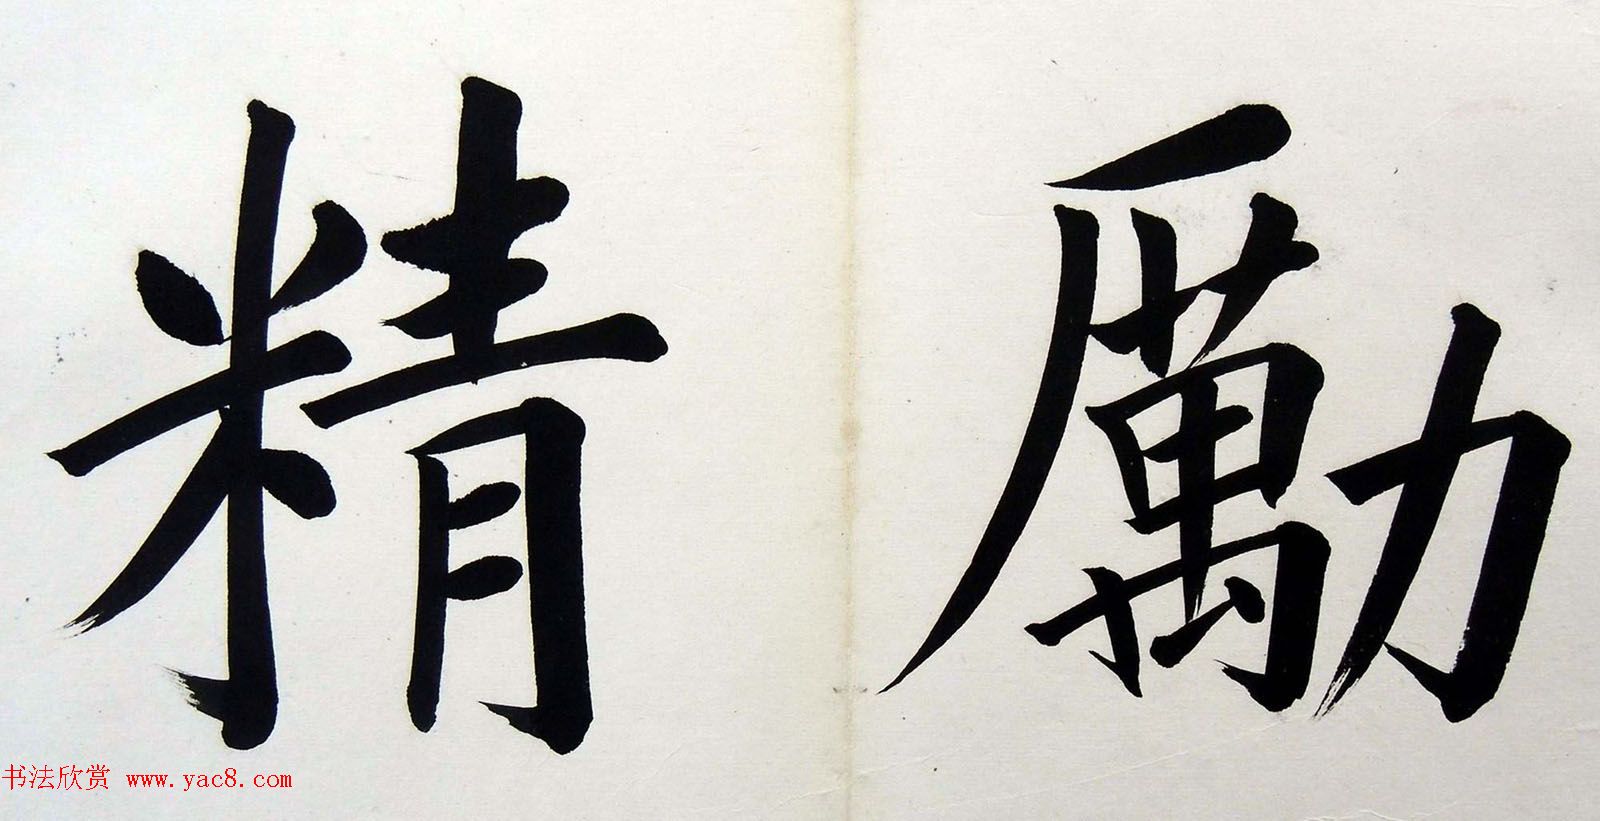 勵精
书法欣赏 www.yac8.com